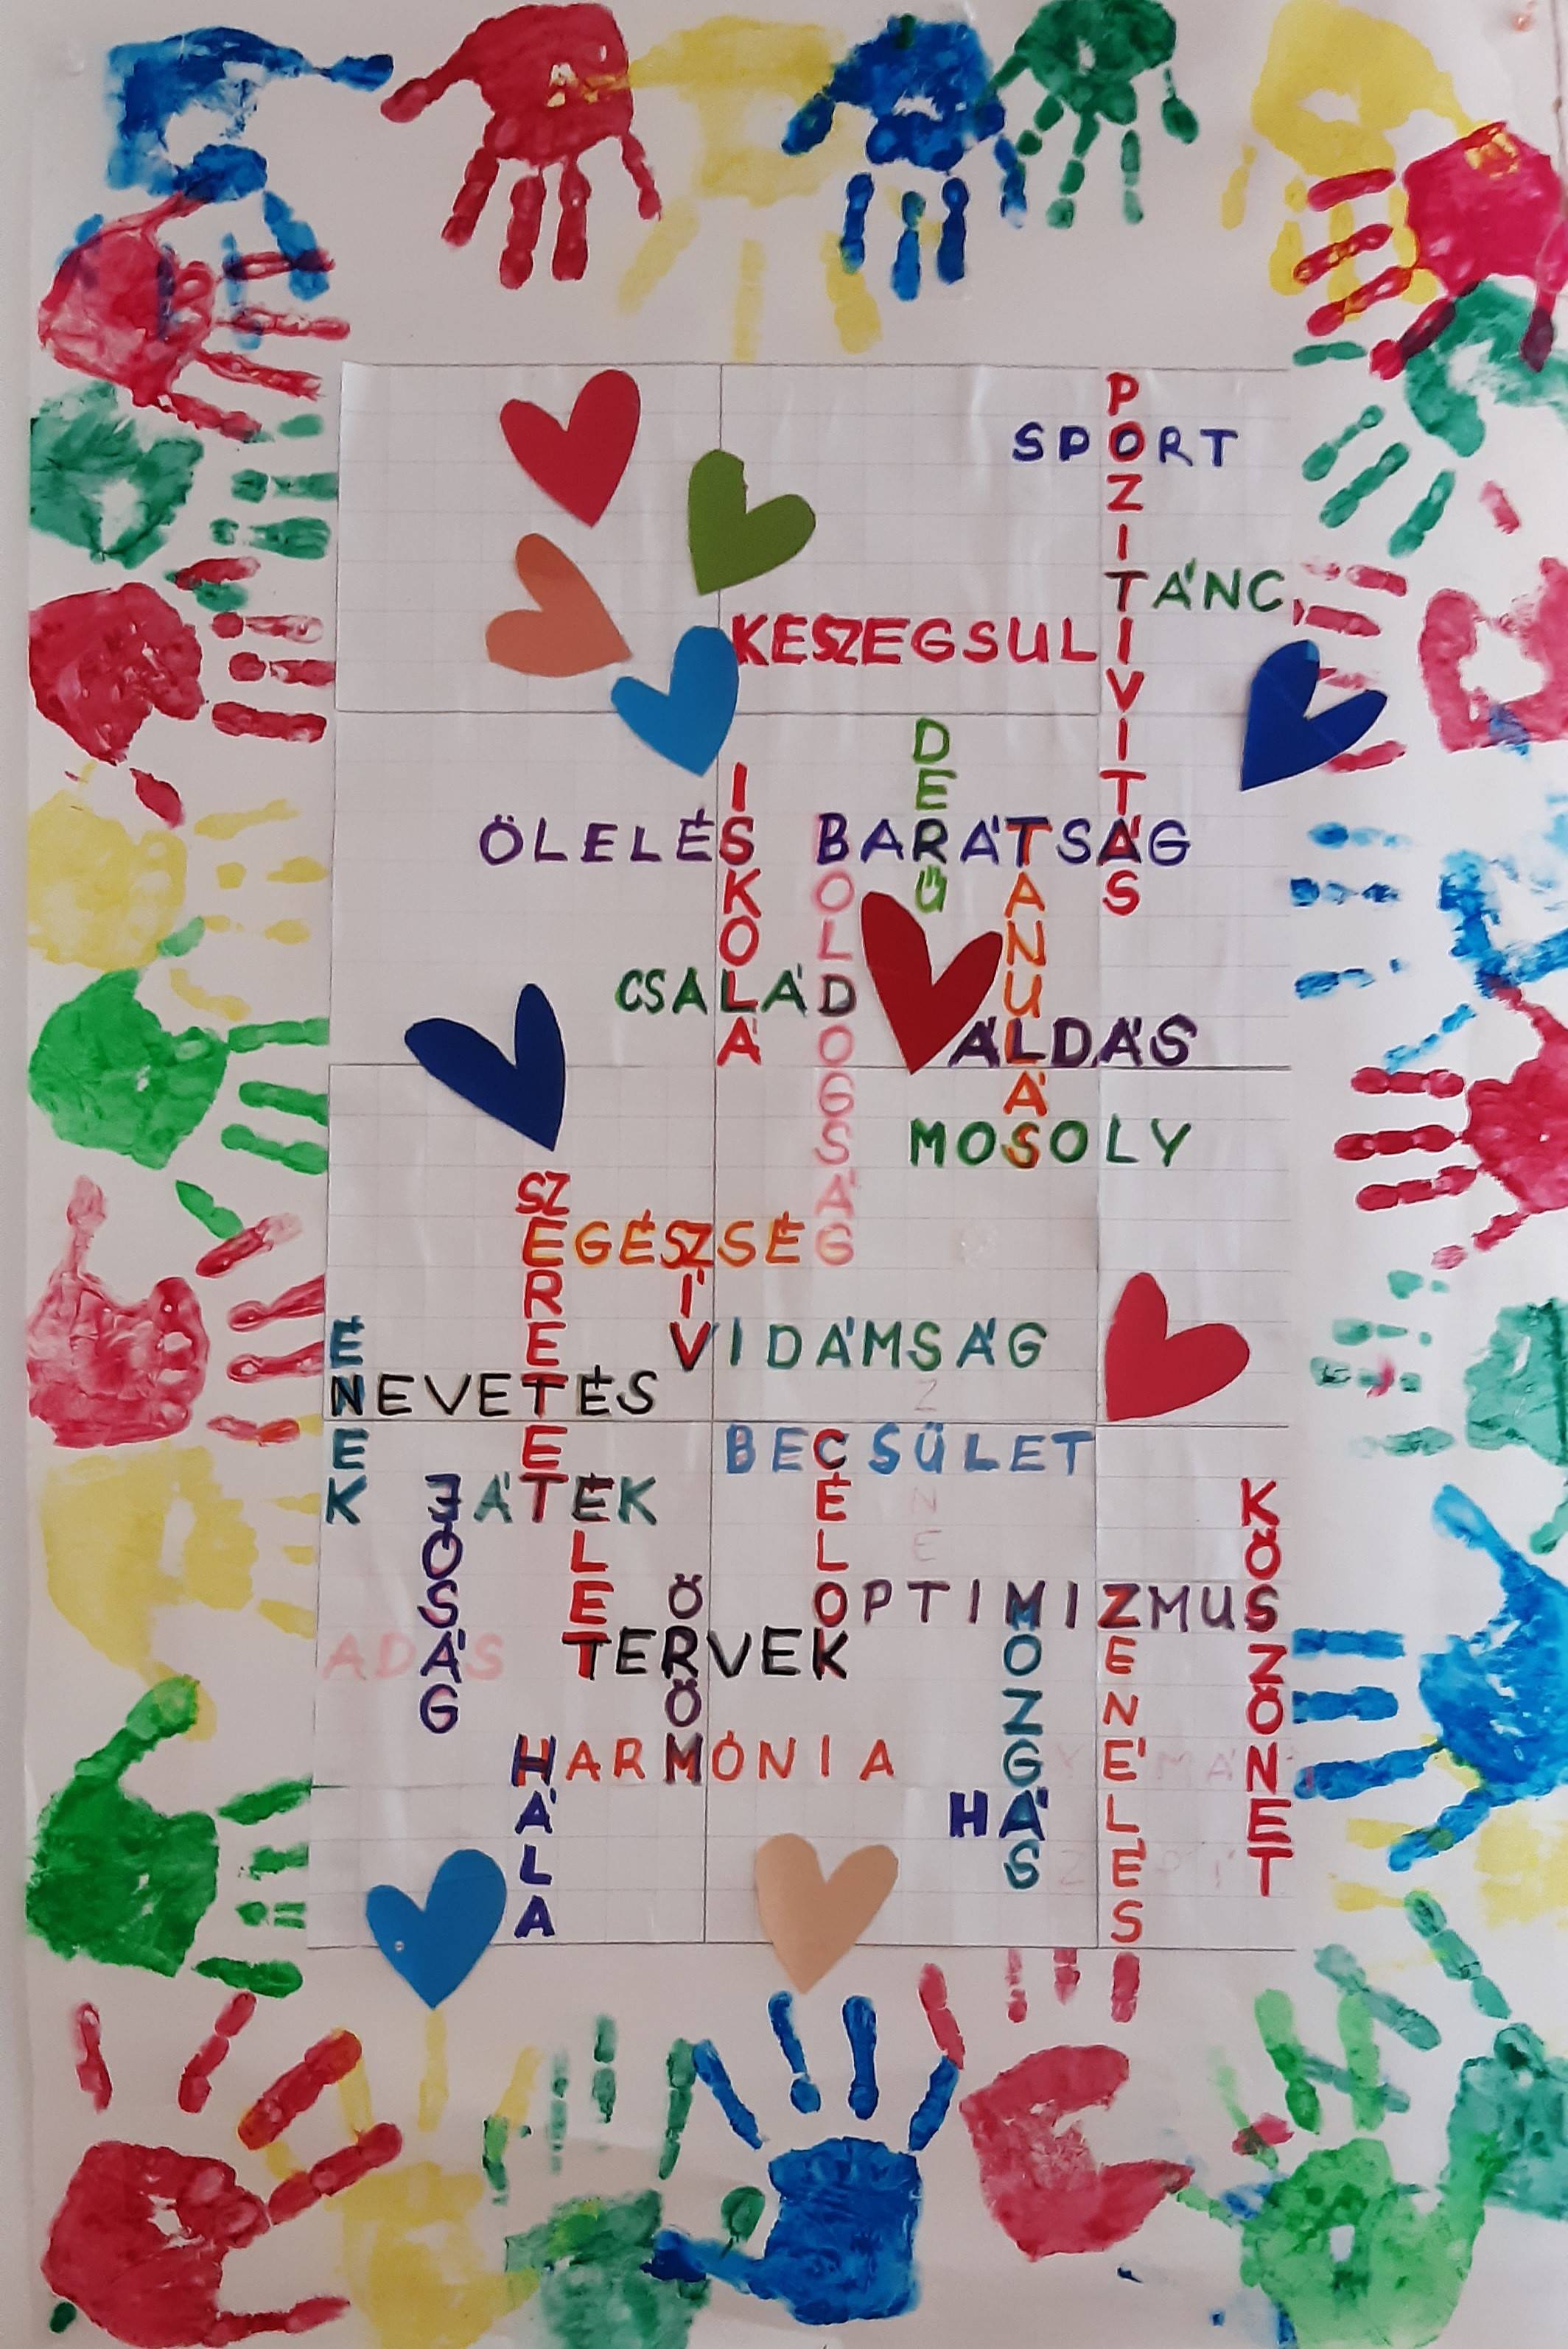 POZITIVITÁS
SPORT
TÁNC
KESZEGSULI
DERŰ
ISKOLA
ÖLELÉS
BARÁTSÁG
BOLDOGSÁG
TANULÁS
CSALÁD
ÁLDÁS
MOSOLY
SZERETET
EGÉSZSÉG
SZÍV
ÉNEK
VIDÁMSÁG
SZÜNET
NEVETÉS
BECSÜLET
CÉLOK
JÁTÉK
JÓSÁG
ÉLET
KÖSZÖNET
ÖRÖM
OPTIMIZMUS
MOZGÁS
ZENÉLÉS
ADÁS
TERVEK
HARMÓNIA
HÁLA